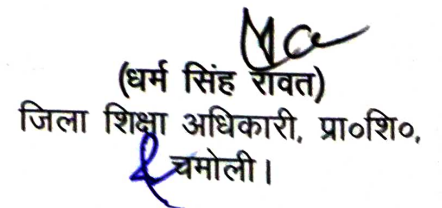 (धर्म सिंह रावत)
जिला शिक्षा अधिकारी, प्रा०शि०,
चमोली।